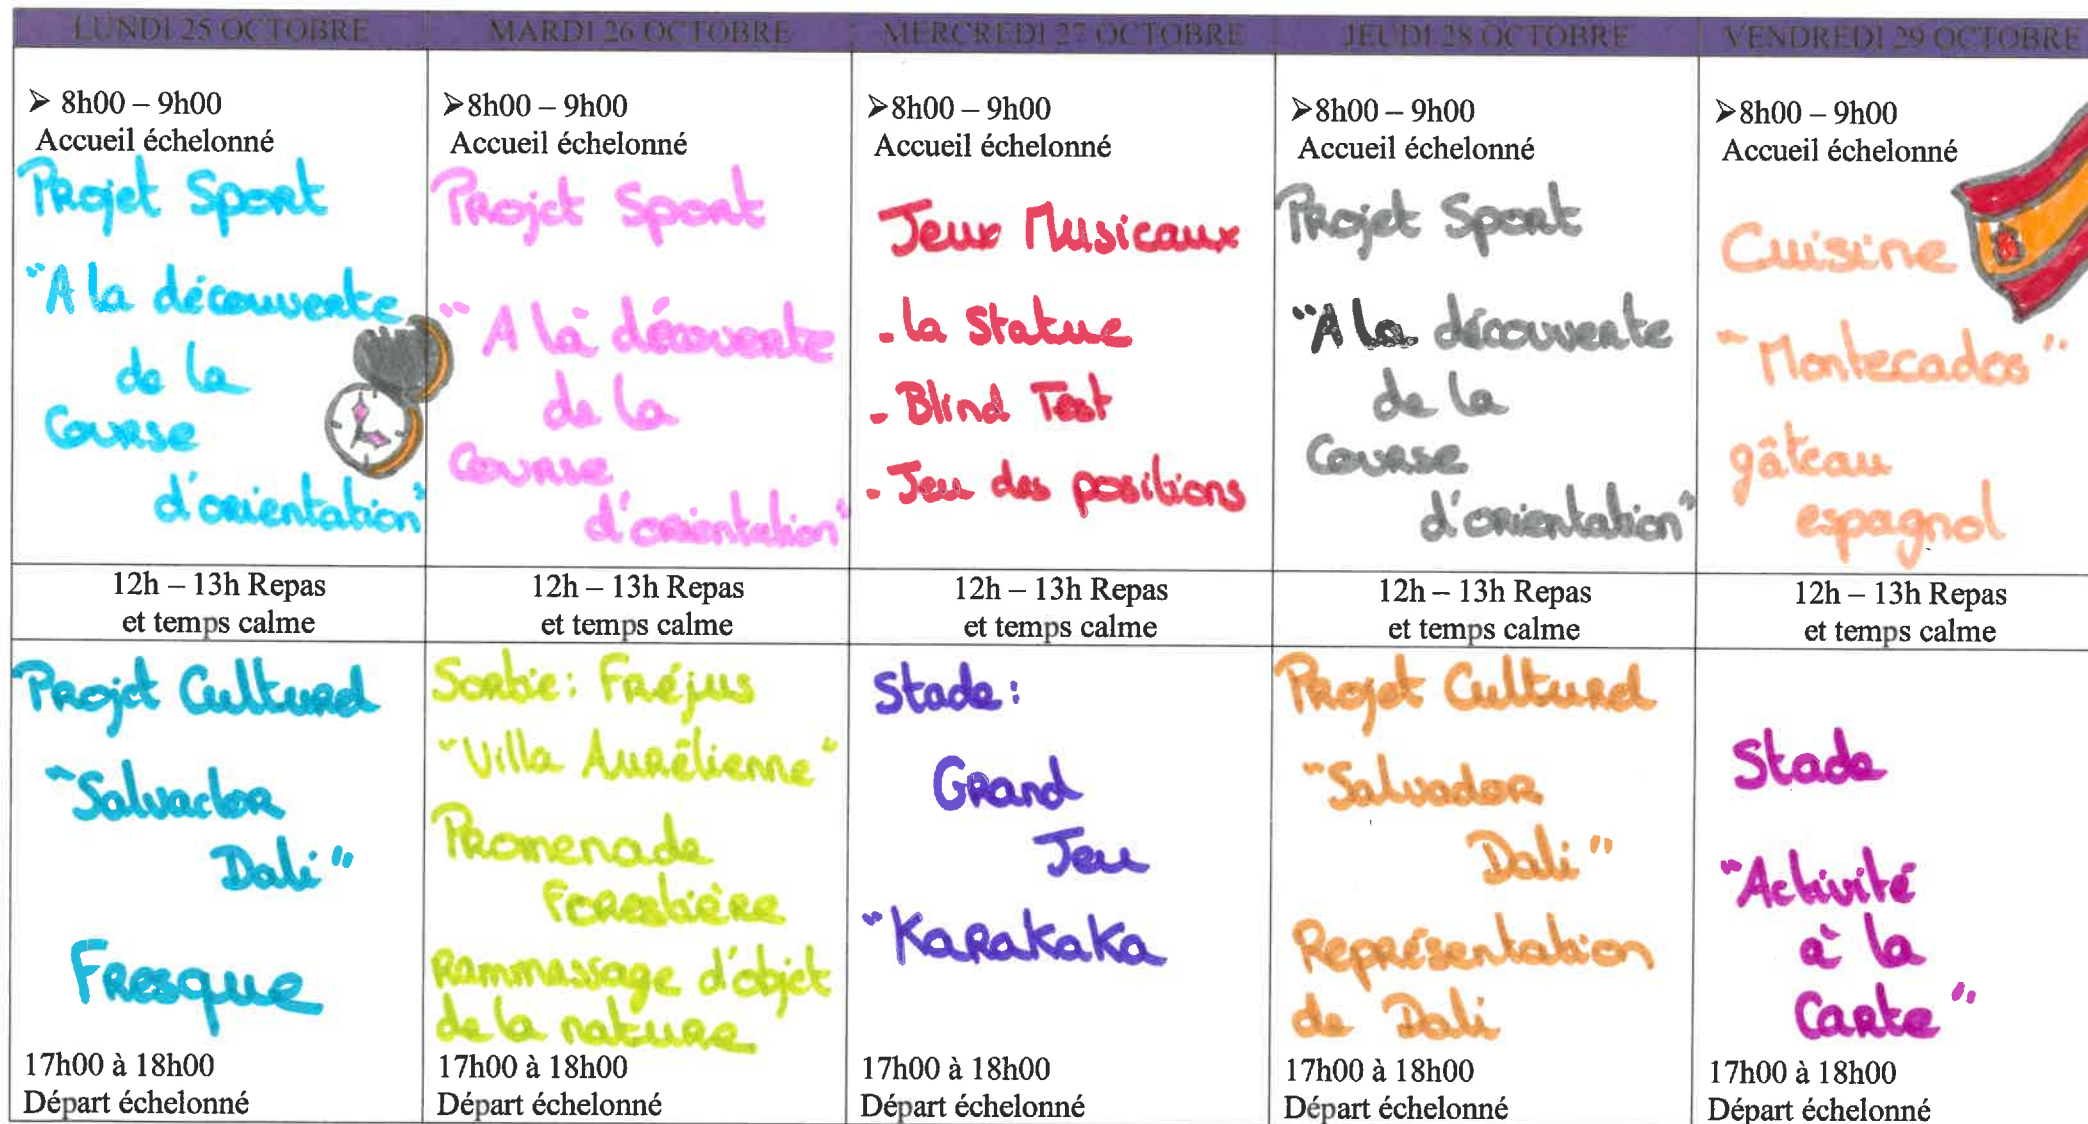 LUNDI 25 OCTOBRE
MARDI 26 OCTOBRE
MERCREDI 27 OCTOBRE
JEUDI 28 OCTOBRE
VENDREDI 29 OCTOBRE
➢ 8h00 – 9h00
Accueil échelonné
Projet Sport
"A la découverte
de la
Course
d'orientation"
➢8h00 – 9h00
Accueil échelonné
Projet Sport
"A la découverte
de la
Course
d'orientation"
➢8h00 – 9h00
Accueil échelonné
Jeux Musicaux
- la statue
- Blind Test
- Jeu des positions
➢8h00 – 9h00
Accueil échelonné
Projet Sport
"A la découverte
de la
Course
d'orientation"
➢8h00 – 9h00
Accueil échelonné
Cuisine
"Montecados"
gâteau
espagnol
12h – 13h Repas
et temps calme
12h – 13h Repas
et temps calme
12h – 13h Repas
et temps calme
12h – 13h Repas
et temps calme
12h – 13h Repas
et temps calme
Projet Culturel
"Salvador
Dali"
Fresque
17h00 à 18h00
Départ échelonné
Sortie: Fréjus
"Villa Aurélienne"
Promenade
Forestière
Rammassage d'objet
de la nature
17h00 à 18h00
Départ échelonné
Stade:
Grand
Jeu
"Karakaka
17h00 à 18h00
Départ échelonné
Projet Culturel
"Salvador
Dali"
Représentation
de Dali
17h00 à 18h00
Départ échelonné
Stade
"Activité
à la
Carte"
17h00 à 18h00
Départ échelonné